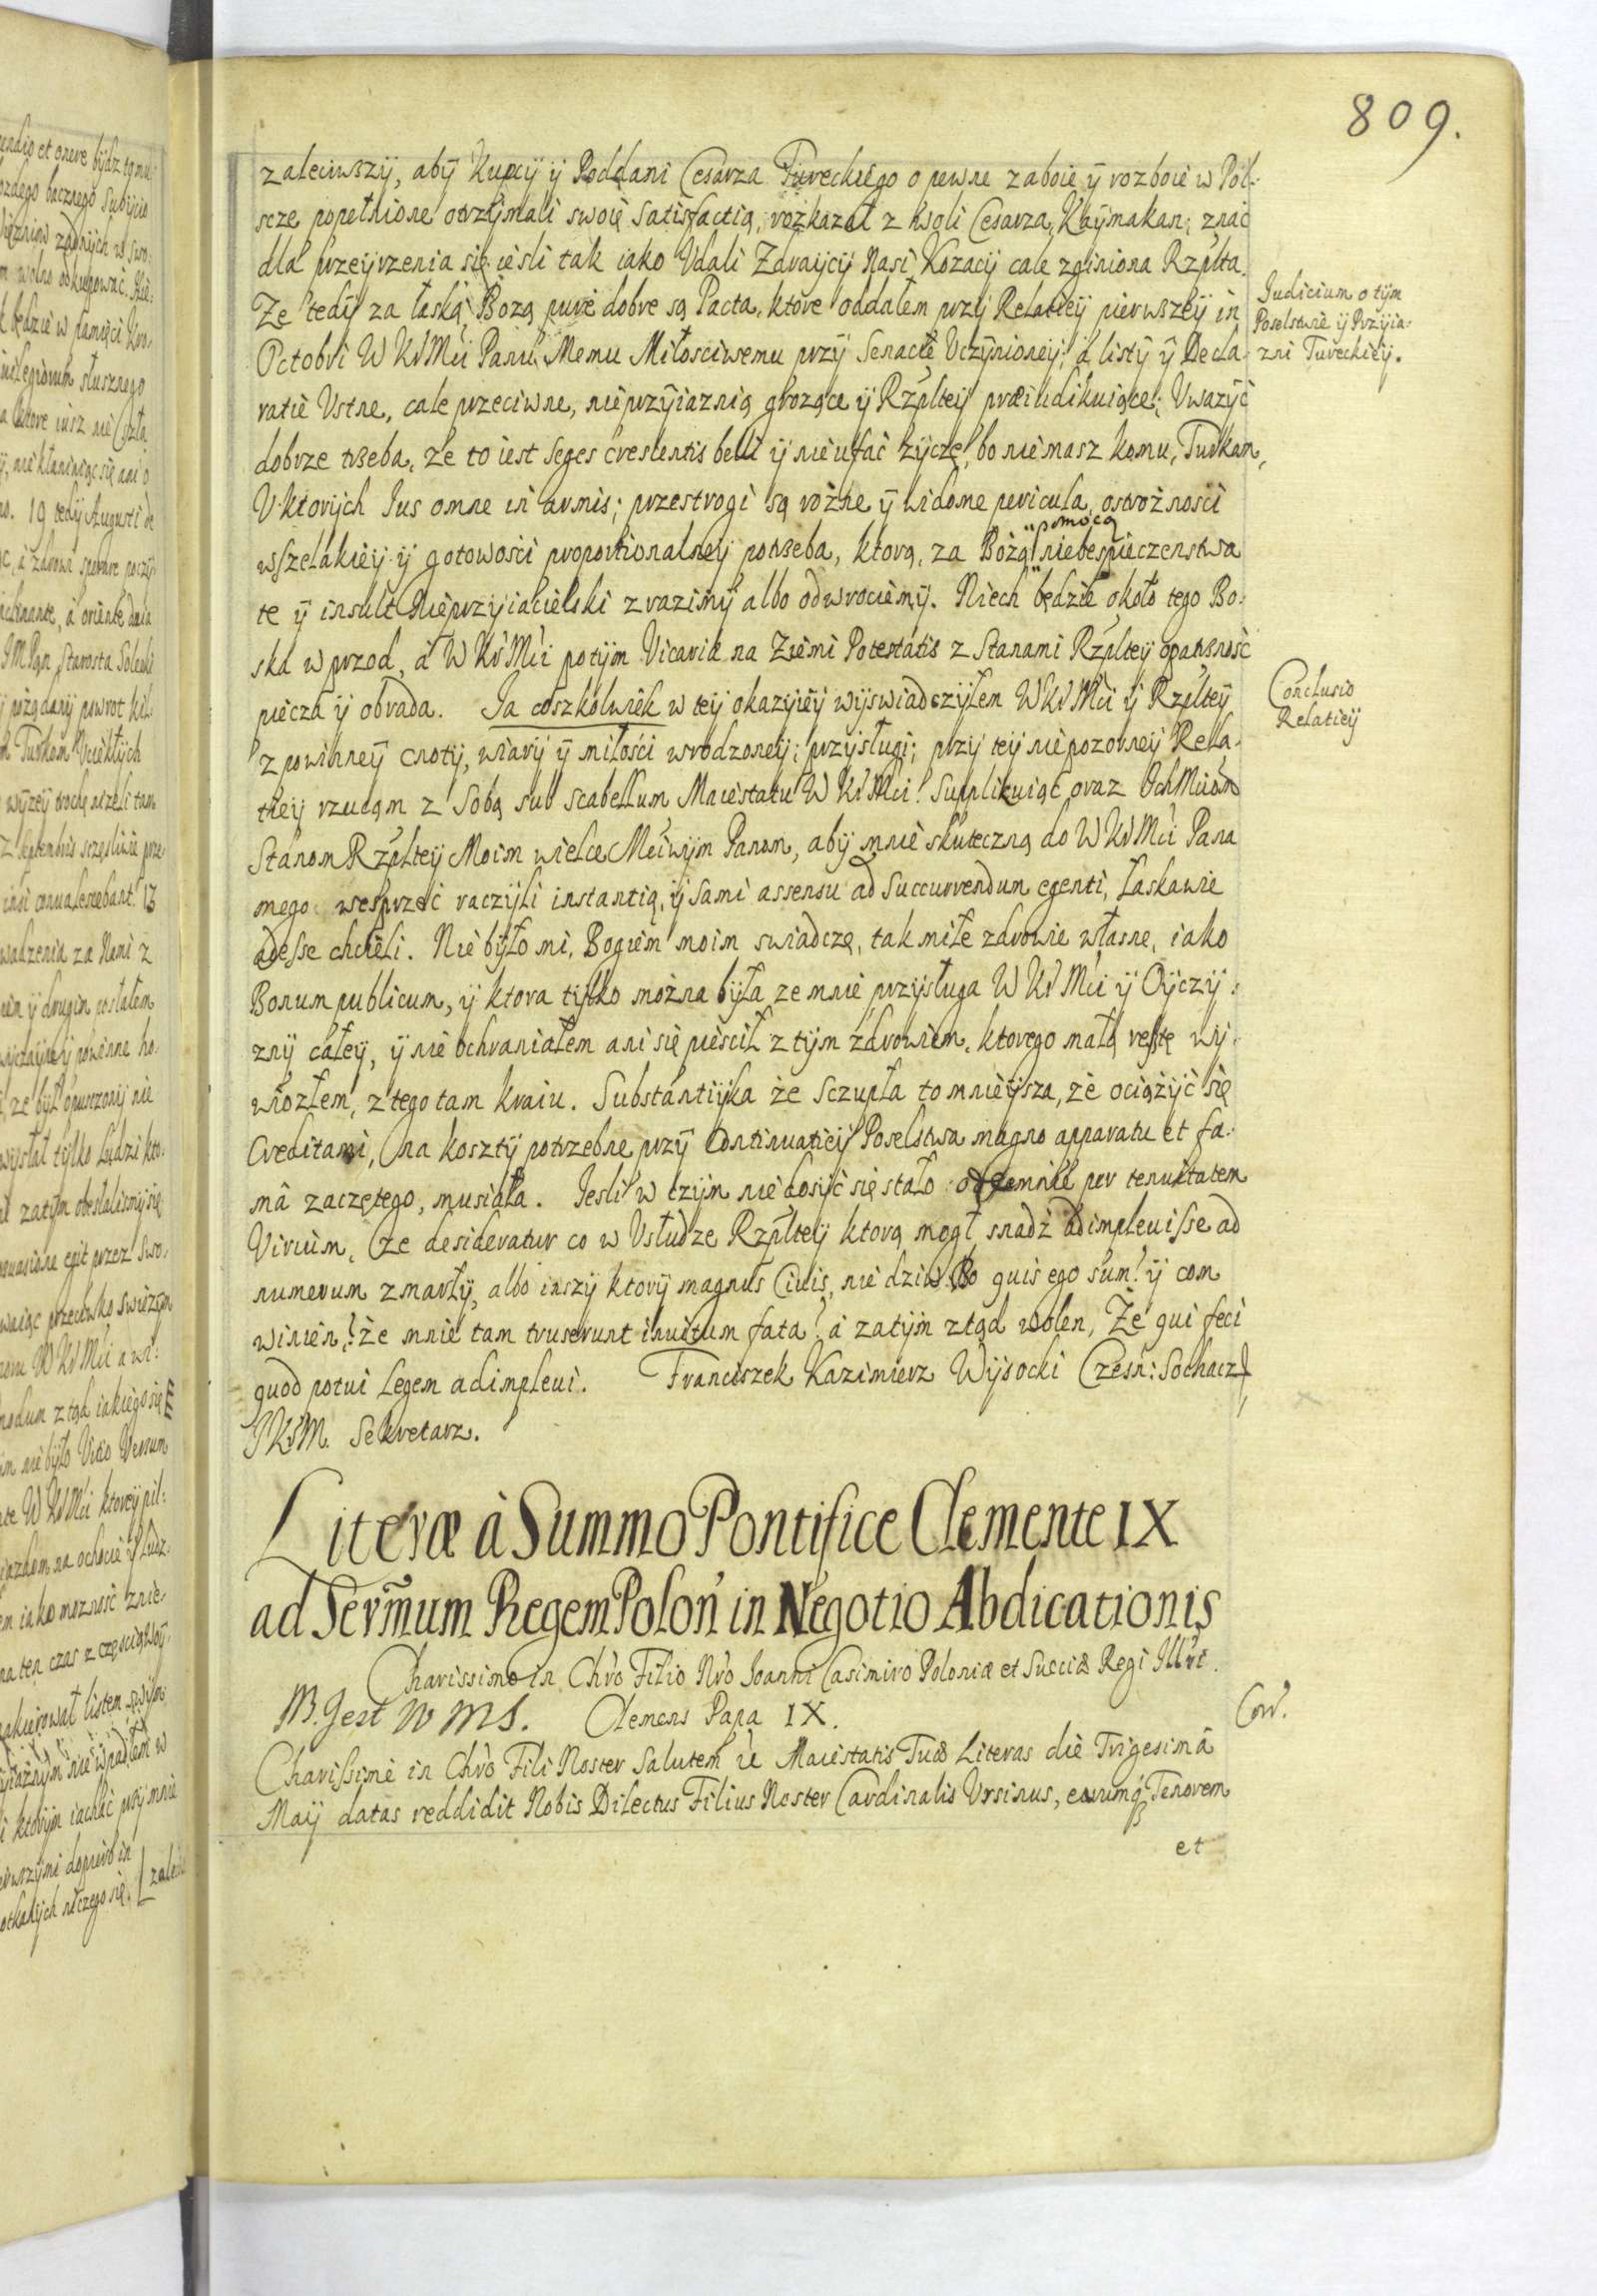 809.
zaleciwszÿ, abÿ Kupcÿ ÿ Poddani Cesarza Tureckiego o pewne zaboie ÿ rozboie w Pol-
scze popełnione otrzÿmali swoię satisfactią, rozkazał z woli Cesarza, Kaÿmakan; znać
dla przeÿrzenia się iesli tak iako Vdali Zdraÿcÿ Nasi Kozacÿ cale zginiona Rzplta.
Ze tedÿ za łaską Bozą pure dobre są Pacta, ktore oddałem przÿ Relatieÿ pierwszeÿ in
Octobri W KrMci Panu Memu Miłosciwemu przÿ Senacie Vczÿnioneÿ, á listÿ ÿ Decla-
ratie Vstne, cale przeciwne, nieprzÿiaznią grozące ÿ Rzplteÿ præiudikuiące; Vwazÿć
dobrze trzeba, ze to iest seges crescentis belli ÿ nie ufać zÿczę, bo nie masz komu, Turkom,
V ktorÿch Ius omne in armis; przestrogi są rożne ÿ widome pericula, ostrożnosci
wszelakieÿ ÿ gotowości proportionalneÿ potrzeba, ktorą, za Bożą pomocą niebespieczenstwa
te ÿ insult Nieprzÿiacielski zrazimÿ albo odwrociemÿ. Niech będzie około tego Bo-
ska wprzod, á W KrMci potÿm Vicaria na Ziemi Potestatis z Stanami Rzplteÿ opatrsność
piecza ÿ obrada. Ia coszkolwiek w teÿ okazÿieÿ wÿswiadczÿłem WKrMci ÿ Rzplteÿ
z powinneÿ cnotÿ, wiarÿ ÿ miłości wrodzoneÿ; przÿsługi; przÿ teÿ niepozorneÿ Rela-
tieÿ rzucam z Sobą sub scabellum Maiestatu W KrMci! Supplikuiąc oraz Ich Mciom
Stanom Rzplteÿ Moim wielce Mciwÿm Panom, abÿ mnie skuteczną do W KrMci Pana
mego wesprzeć raczÿli instantią, ÿ sami assensu ad succurrendum egenti, łaskawie
adesse chcieli. Nie bÿło mi, Bogiem moim swiadczę, tak miłe zdrowie własne, iako
Bonum publicum, ÿ ktora tÿlko można bÿła ze mnie przÿsługa W KrMci ÿ Oÿczÿ-
znÿ całeÿ, ÿ nie ochraniałem ani się piescił z tÿm zdrowiem, ktorego małą resztę wÿ-
wiozłem, z tego tam kraiu. Substantiÿka że sczupła to mnieÿsza, że ociążÿć się
Creditami, na kosztÿ potrzebne przÿ Continuatieÿ Poselstwa magno apparatu et fa-
mâ zaczętego, musiała. Iesli w czÿm nie dosÿć się stało odemnie per tenuitatem
Virium, ze desideratur co w Vsłudze Rzplteÿ ktorą mogł snadź adimplevisse ad
numerum zmarłÿ, albo inszÿ ktorÿ magnus Civis, nie dziw. Bo quis ego sum? ÿ com
winien? że mnie tam truserunt invitum fata? a zatÿm ztąd wolen, Że qui feci
quod potui Legem adimplevi. Franciszek Kazimierz Wÿsocki Czesn: Sochacz
JKrM. Sekretarz.
Iudicium o tÿm
Poselstwie ÿ Przÿia-
zni Tureckieÿ.
Conclusio
Relatieÿ
Literæ à Summo Pontifice Clemente IX
ad Sermum Regem Polon in Negotio Abdicationis
Charissimo in Chro Filio Nro Ioanni Casimiro Poloniæ et Sueciæ Regi Illrt.
NB. Jest w MS. Clemens Papa IX.
Cor.
Charissime in Chro Fili Noster Salutem &c Maiestatis Tuæ Literas die Trigesimâ
Maÿ datas reddidit Nobis Dilectus Filius Noster Cardinalis Vrsinus, earumq Tenorem
et